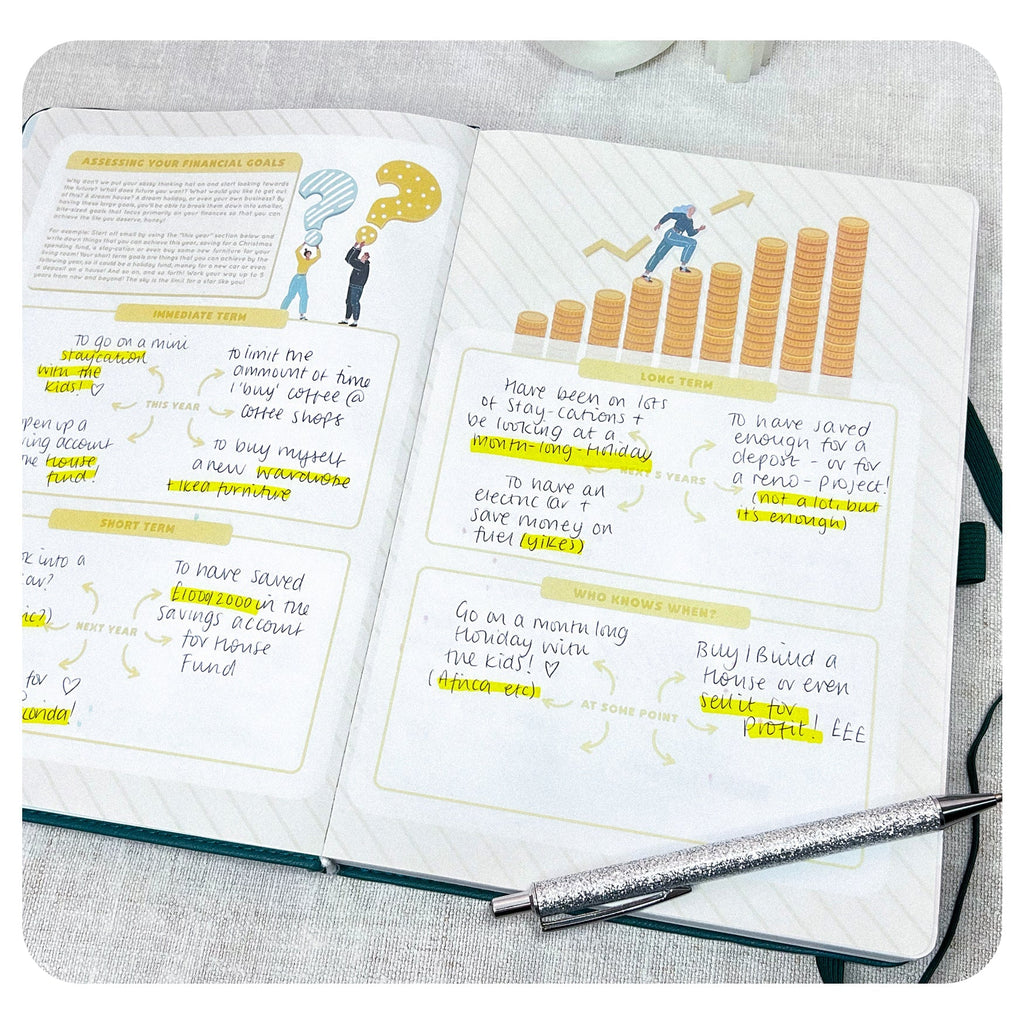 ASSESSING YOUR FINANCIAL GOALS
Why don't we put your sassy thinking hat on and start looking towards
the future? What does future you want? What would you like to get out
of this? A dream house? A dream holiday, or even your own business? By
having these large goals, you'll be able to break them down into smaller,
bite-sized goals that focus primarily on your finances so that you can
achieve the life you deserve, honey!
For example: Start off small by using the "this year" section below and
write down things that you can achieve this year, saving for a Christmas
spending fund, a stay-cation or even buy some new furniture for your
living room! Your short term goals are things that you can achieve by the
following year, so it could be a holiday fund, money for a new car or even
a deposit on a house! And so on, and so forth! Work your way up to 5
years from now and beyond! The sky is the limit for a star like you!
IMMEDIATE TERM
To go on a mini
staycation
with the
kids! ♡
to limit the
ammount of time
I 'buy' coffee @
coffee shops
THIS YEAR
pen up a
ing account
House
fund!
to buy myself
a new wardrobe
+ Ikea furniture
SHORT TERM
into a
To have saved
£1000/2000 in the
savings account
for House
Fund
NEXT YEAR
for ♡
LONG TERM
Have been on lots
of Stay-cations +
be looking at a
month-long-Holiday
To have saved
enough for a
depost - or for
a reno-project!
(not a lot, but
it's enough)
NEXT 5 YEARS
To have an
electric car +
save money on
fuel (yikes)
WHO KNOWS WHEN?
Go on a month long
Holiday with
the kids! ♡
(Africa etc)
Buy/Build a
House or even
sell it for
Profit! EEE
AT SOME POINT